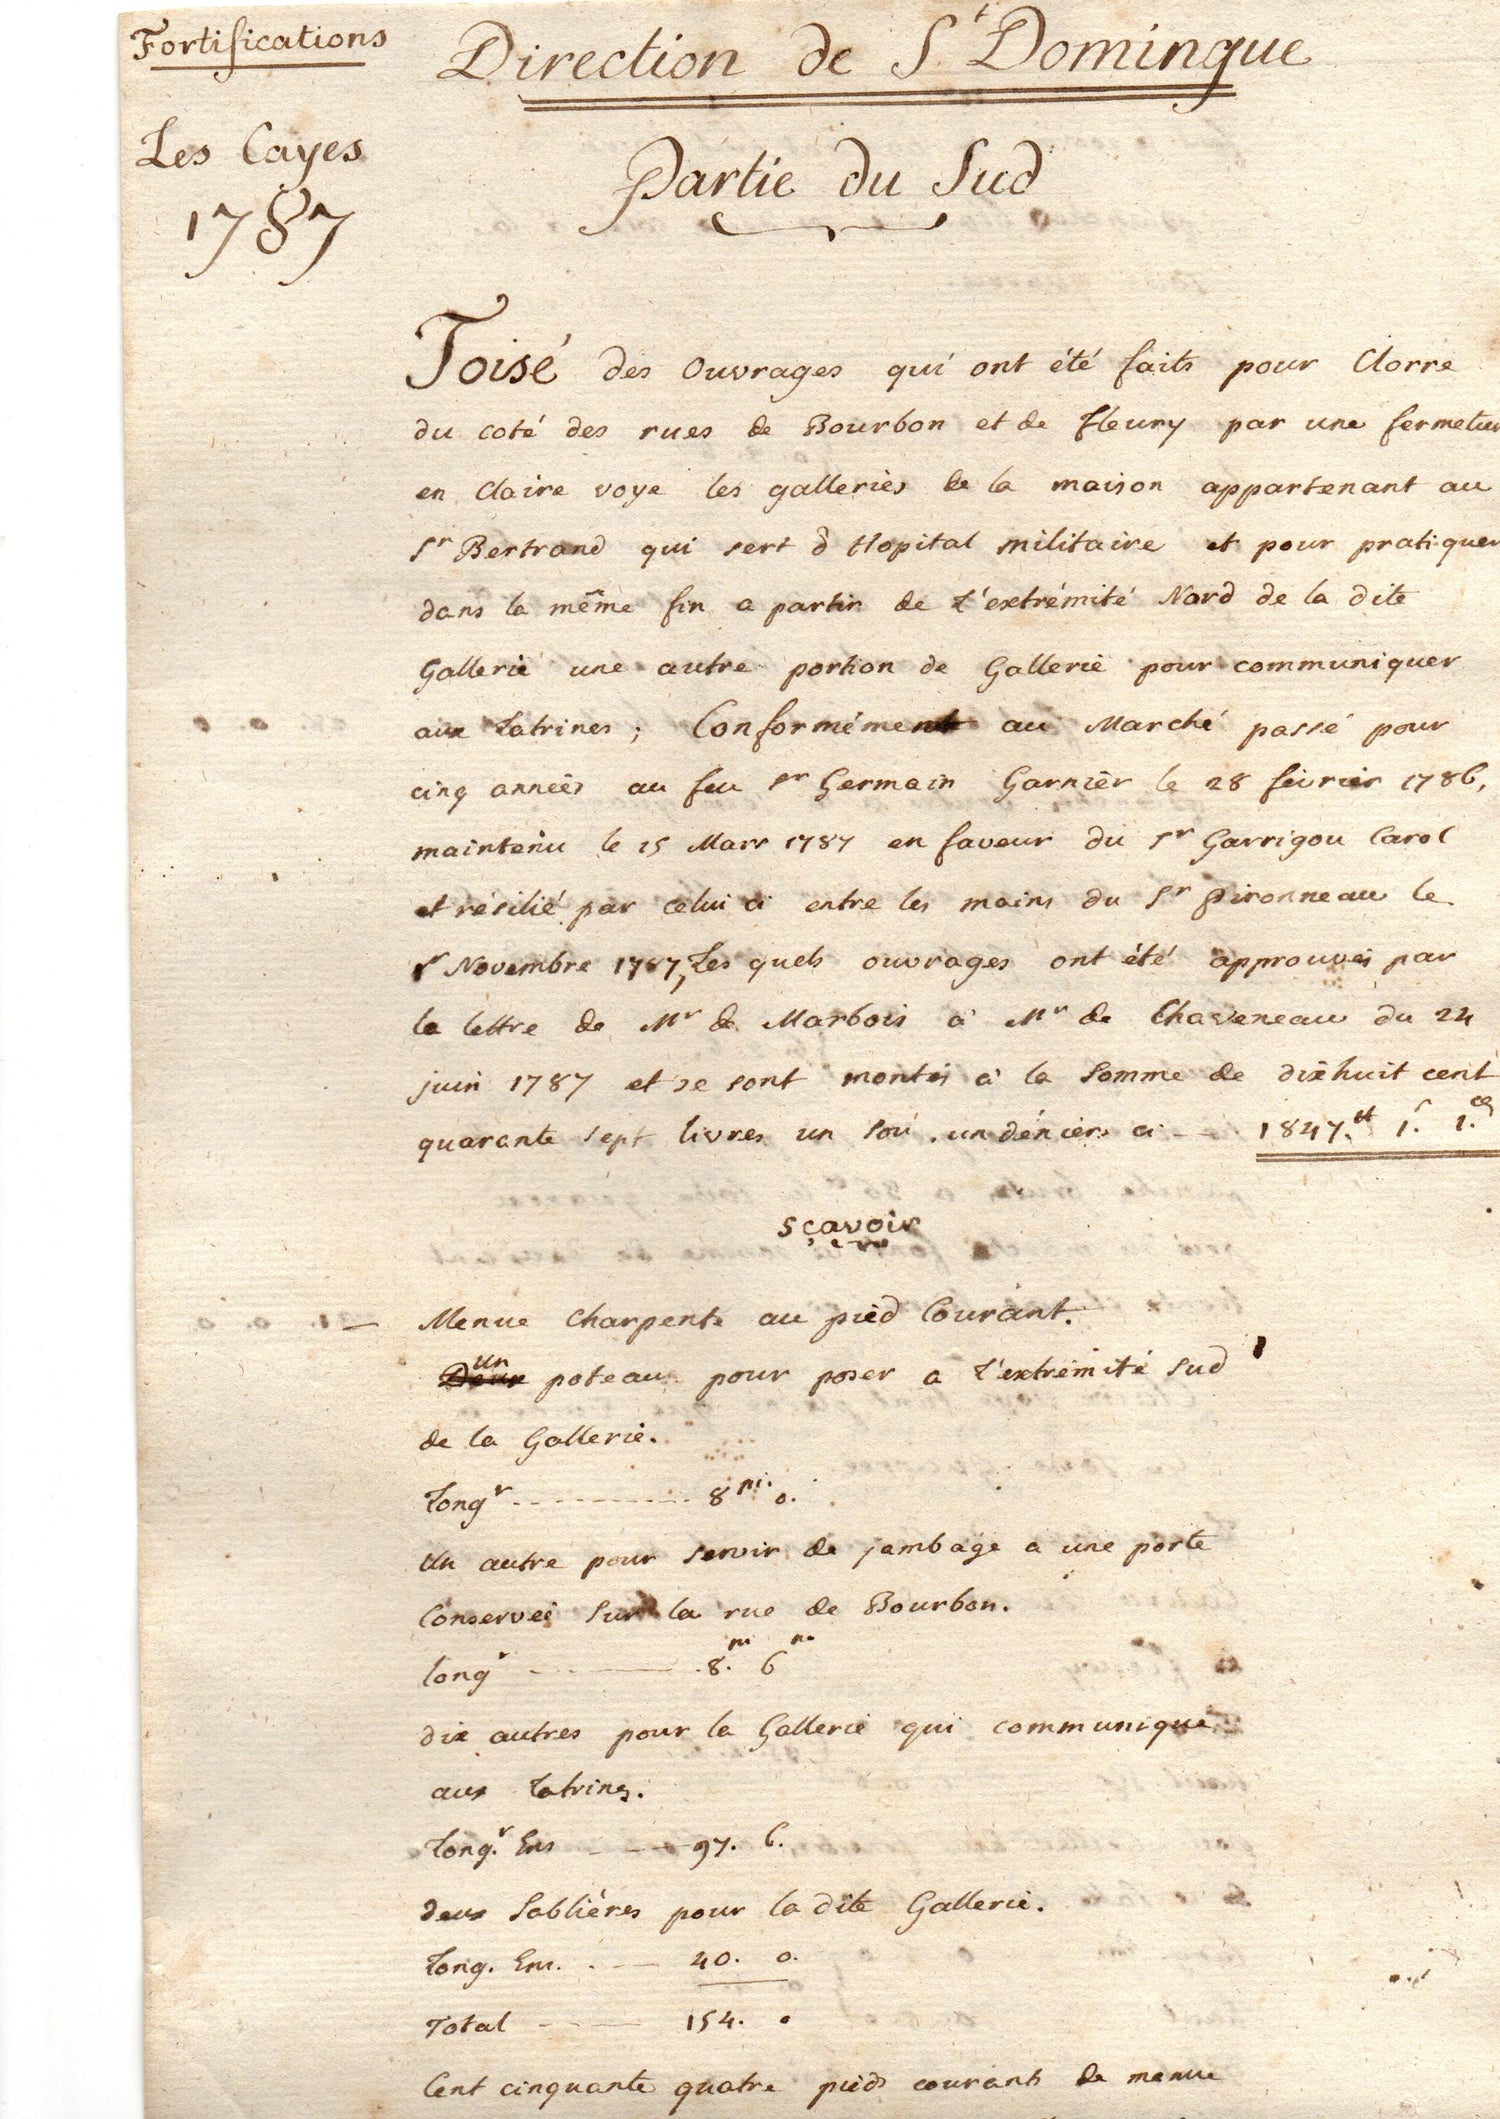 Fortifications
Direction de St Domingue
Les Cayes
1787
Partie du Sud
Toisé des Ouvrages qui ont été faits pour Clorre
du coté des rues de Bourbon et de Fleury par une fermetur
en Claire voye les galleries de la maison appartenant au
Sr Bertrand qui sert d'Hopital militaire et pour pratiquer
dans la même fin a partir de L'extrémité Nord de la dite
Gallerie une autre portion de Gallerie pour communiquer
aux Latrines ; Conformément au Marché passé pour
cinq années au feu Sr Germain Garnier le 28 février 1786,
maintenu le 15 Mars 1787 en faveur du Sr Garrigou Carol
et résilié par celui ci entre les mains du Sr Pironneau le
1r Novembre 1787, Les quels ouvrages ont été approuvés par
la lettre de Mr de Marbois à Mr de Chaveneau du 24
juin 1787 et se sont montés à la Somme de dixhuit cent
quarante sept livres un Sou un déniers ci — 1847.tt 1.s 1.
Sçavoir
— Menue Charpente au pied Courant.
Un
Deux poteau pour poser a L'extrémité Sud
de la Gallerie.
Longr ---------- 8 pi. 0.
Un autre pour servir de jambage a une porte
Conservée Sur la rue de Bourbon.
longr ---------- 8. pi 6 po
dix autres pour la Gallerie qui communique
aux Latrines.
Longr. Ens ---- 97. 6.
deux Sablières pour la dite Gallerie.
Long. Ens. ---- 40. 0.
Total ---- 154. 0
Cent cinquante quatre pieds courants de menue